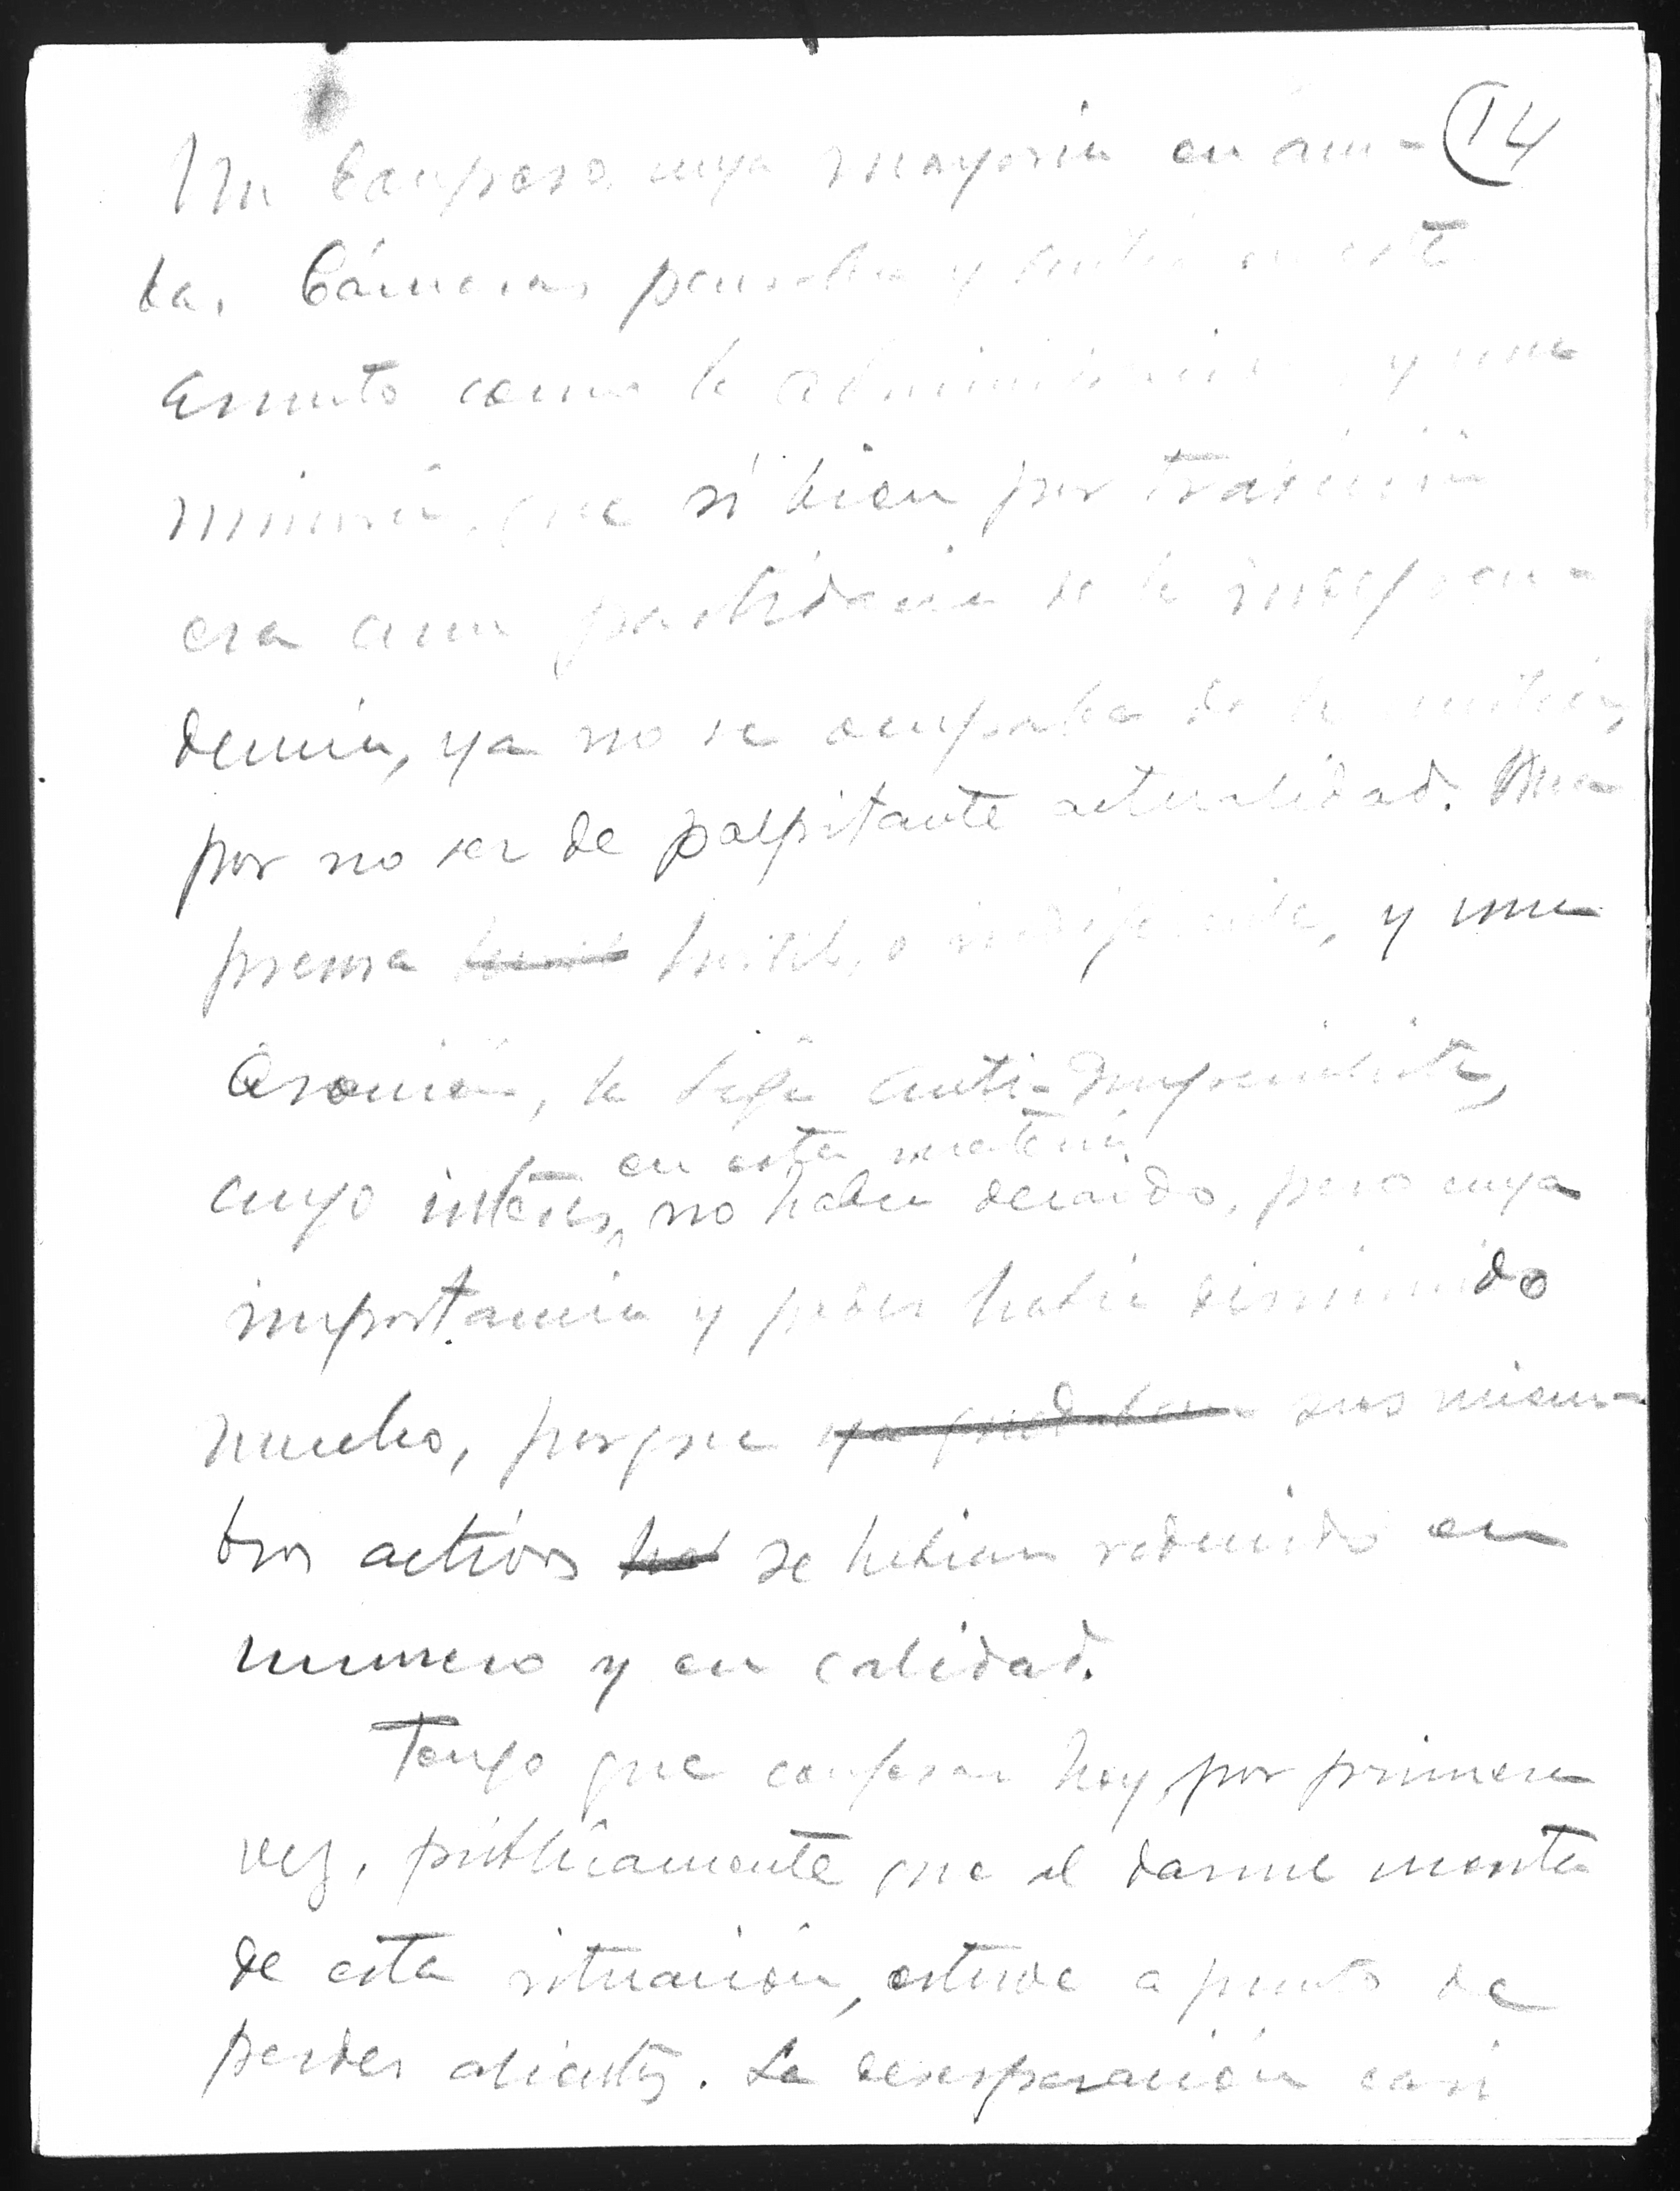 14
Un Congreso, cuya mayoría en am-
bas Cámaras pensaba y sentía en este
asunto como la administración y una
minoría, que si bien por tradición
era aun partidaria de la indepen-
dencia, ya no se ocupaba de la
por no ser de palpitante actualidad. Una
prensa hostil, o indiferente, y una
Asociación, la Liga Anti-Imperialista,
en esta materia
cuyo interés no había decaído, pero cuya
importancia y poder había disminuido
mucho, porque ya quedaban sus miem-
bros activos ha se habian reducido en
numero y en calidad.
Tengo que confesar hoy, por primera
vez, públicamente que al darme cuenta
de esta situación, estuve a punto de
perder alientos. La desesperación casi